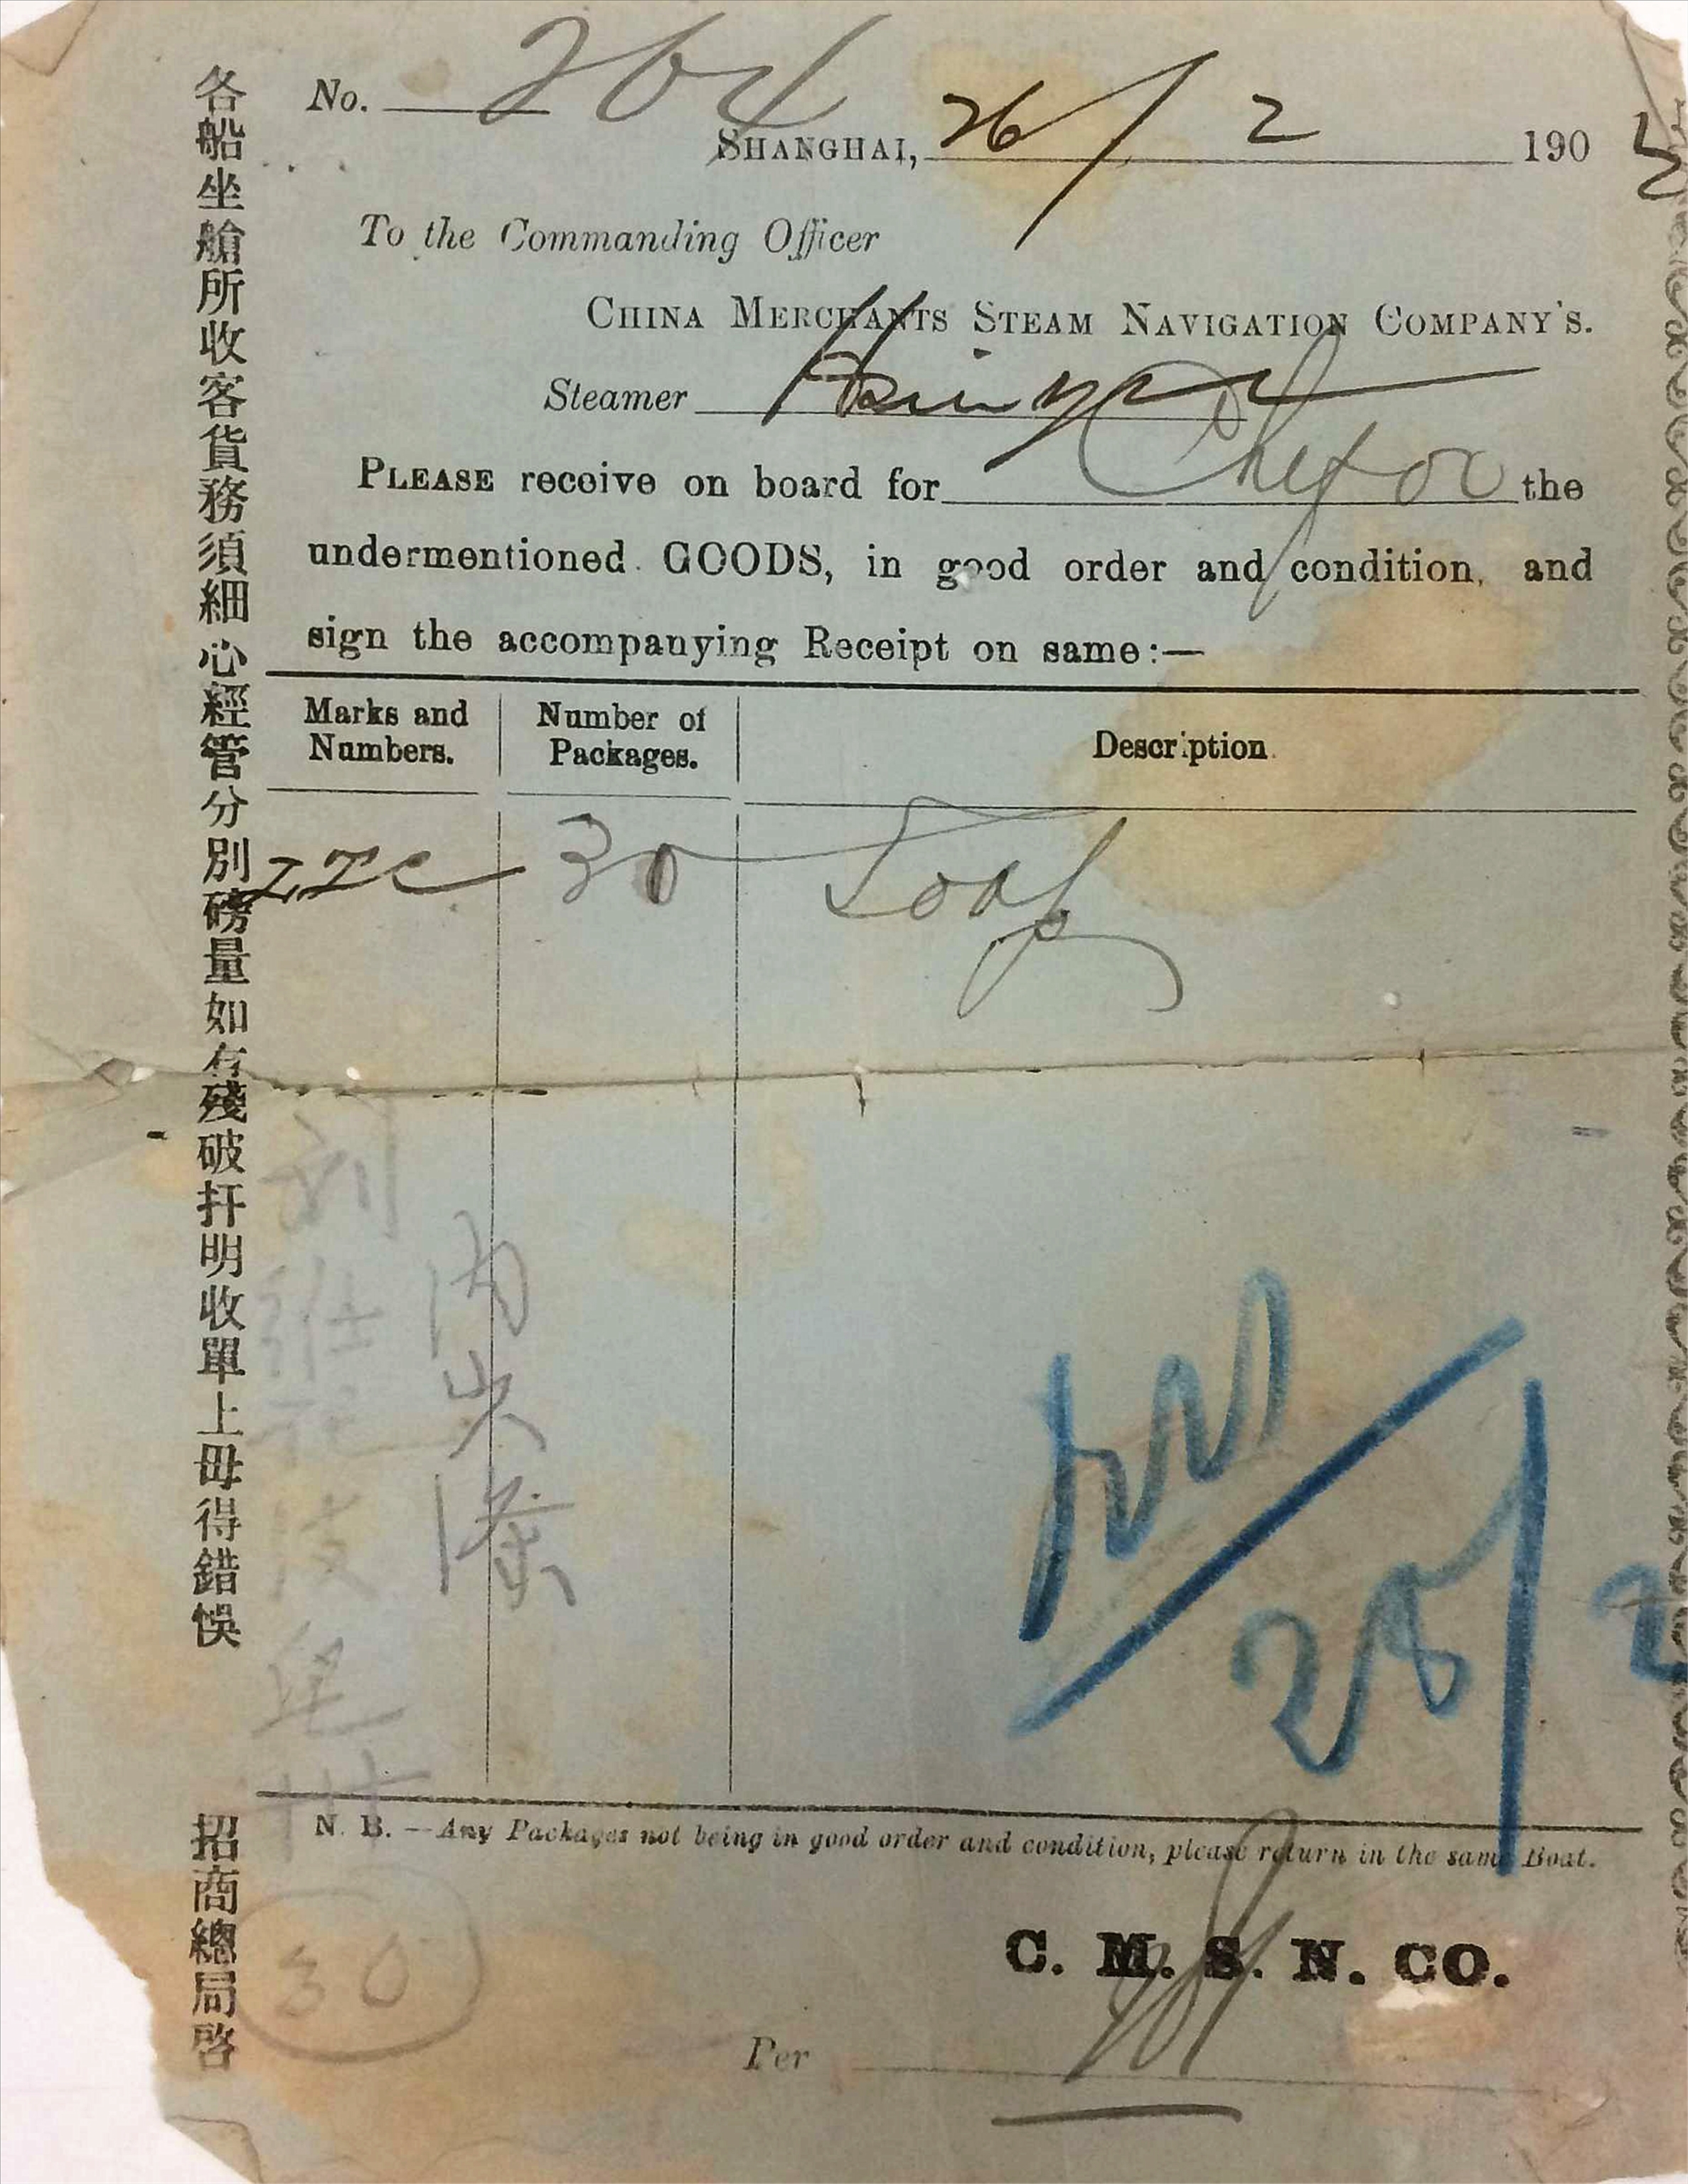 各船坐艙所收客貨務須細心經管分別磅量如有殘破扞明收單上毋得錯悞
招商總局啓
No. 264
SHANGHAI, 26/2 1905
To the Commanding Officer
CHINA MERCHANTS STEAM NAVIGATION COMPANY'S.
Steamer
PLEASE receive on board for Chefoo the
undermentioned GOODS, in good order and condition, and
sign the accompanying Receipt on same:—
Marks and Numbers.
Number of Packages.
Description
30 Soap
28/2
N. B. —Any Packages not being in good order and condition, please return in the same Boat.
30
C. M. S. N. CO.
Per